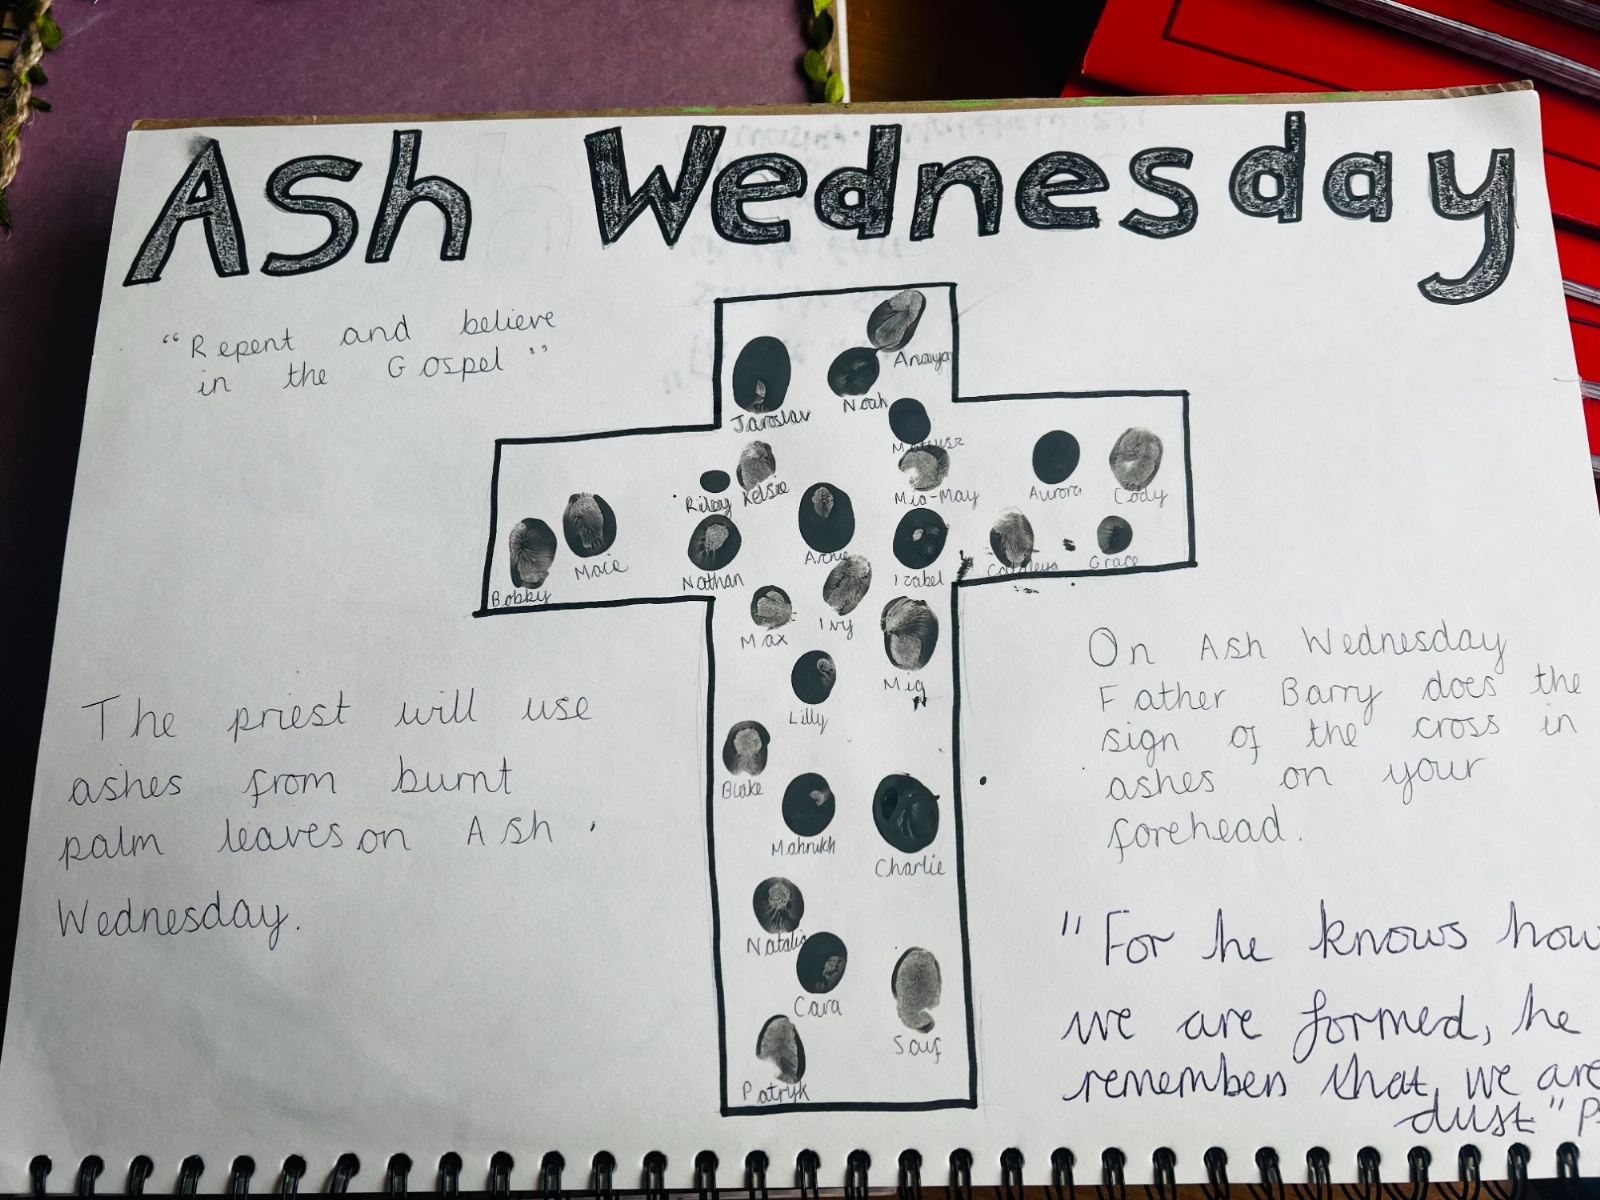 Ash Wednesday
"Repent and believe
in the Gospel"
Anaya
Noah
Jaroslav
Mateusz
Kelsie
Riley
Mia-May
Aurora
Cody
Archie
Izabel
Grace
Nathan
Macie
Bobby
Ivy
Max
Lilly
Blake
Mahrukh
Charlie
Natalia
Cara
Patryk
The priest will use
ashes from burnt
palm leaves on Ash
Wednesday.
On Ash Wednesday
Father Barry does the
sign of the cross in
ashes on your
forehead.
"For he knows how
we are formed, he
remembers that we are
dust"